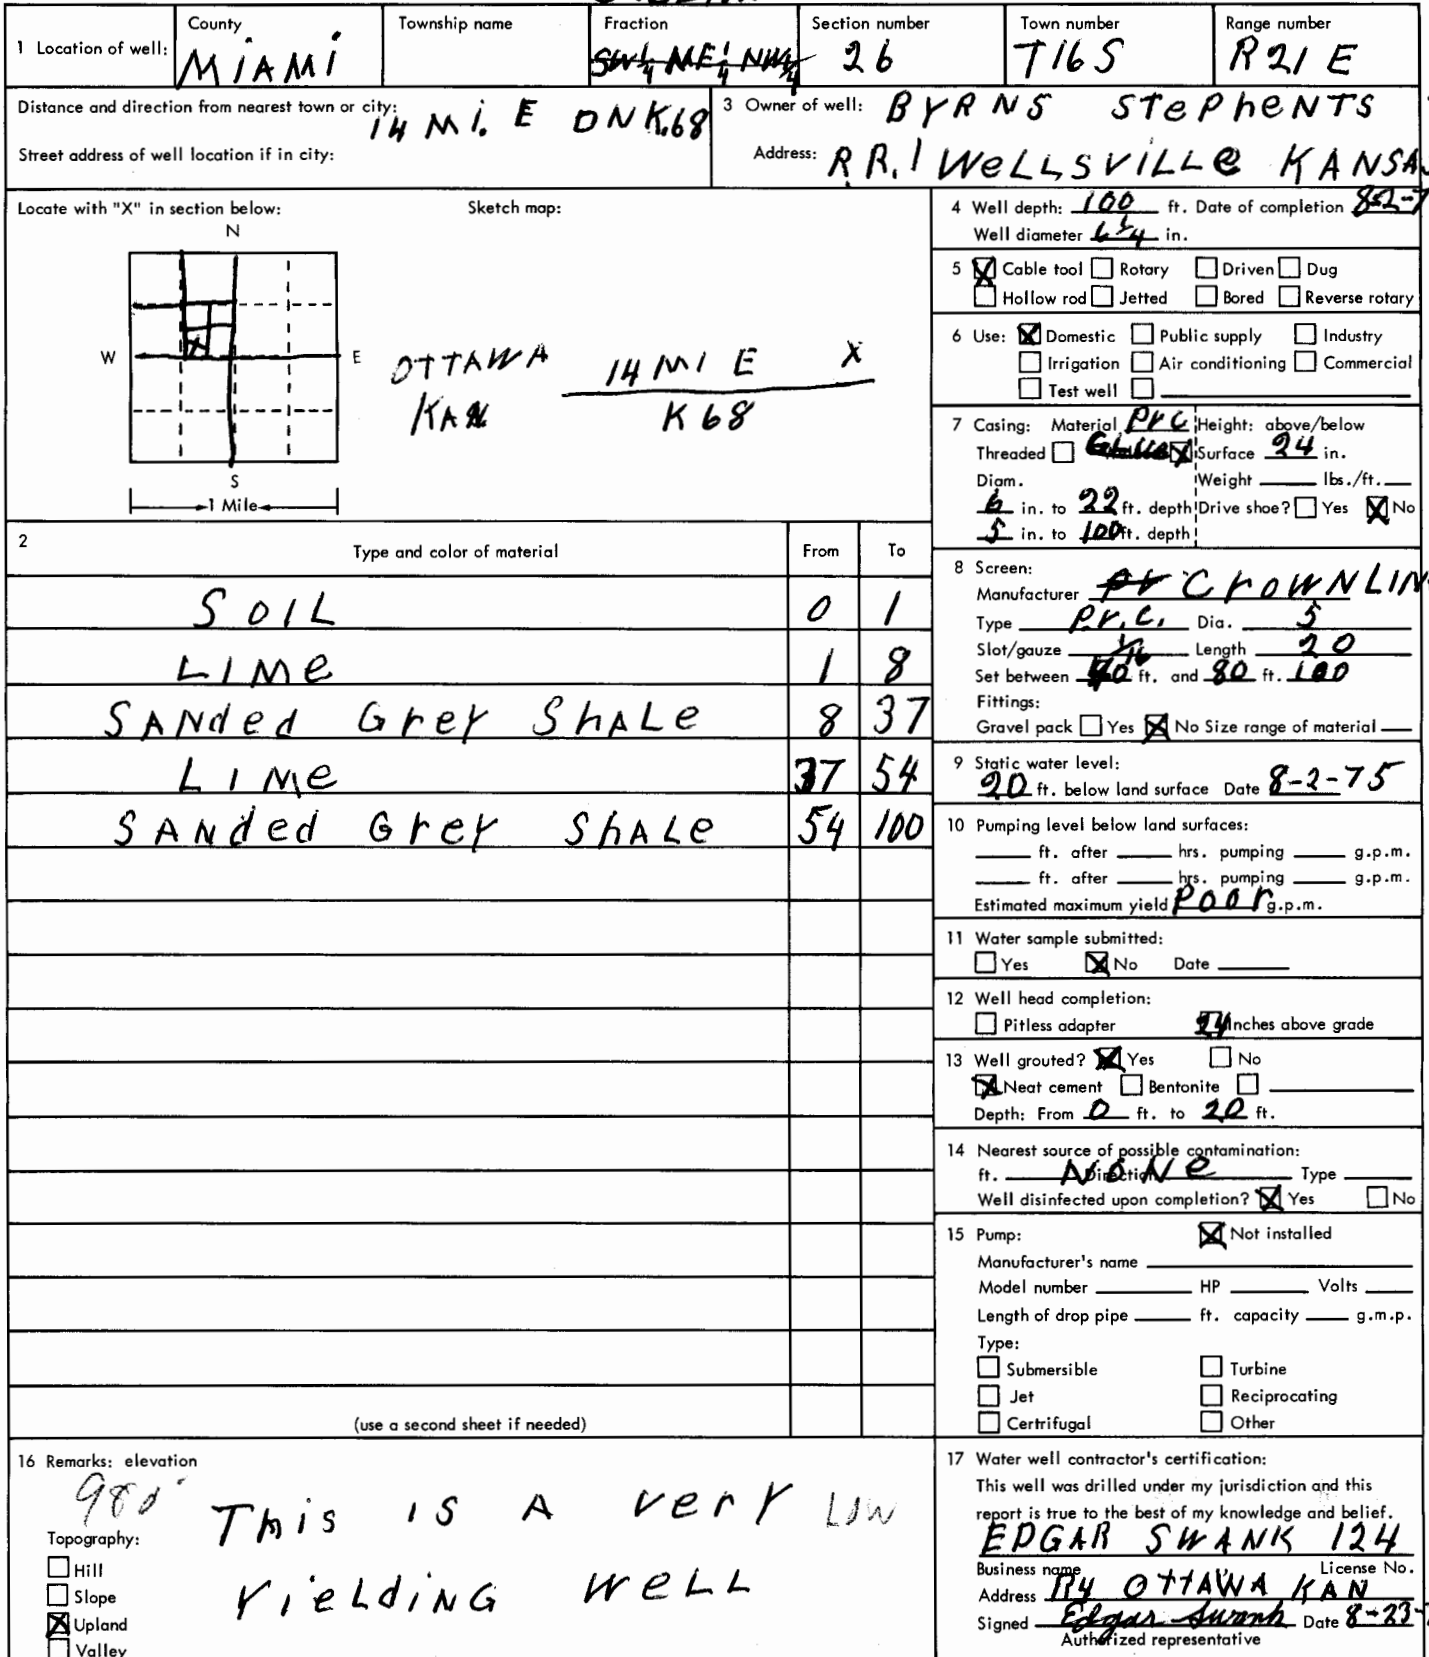 1 Location of well:
County
MiAMi
Township name
Fraction
SW¼ NE¼ NW¼
Section number
26
Town number
T16S
Range number
R21E
Distance and direction from nearest town or city:
14 Mi. E ON K.68
Street address of well location if in city:
3 Owner of well: BYRNS STePheNTS
Address: R.R.1 WeLLSViLLe KANSA
Locate with "X" in section below:
Sketch map:
N
W
E
S
1 Mile
OTTAWA
KAN
14 MI E X
K 68
4 Well depth: 100 ft. Date of completion 8-2-7
Well diameter 6 1/4 in.
5 Cable tool Rotary Driven Dug
Hollow rod Jetted Bored Reverse rotary
6 Use: Domestic Public supply Industry
Irrigation Air conditioning Commercial
Test well
7 Casing: Material PVC Height: above/below
Threaded Surface 24 in.
Diam. Weight lbs./ft.
6 in. to 22 ft. depth Drive shoe? Yes No
5 in. to 100 ft. depth
2
Type and color of material
From
To
SOIL 0 1
LIMe 1 8
SANded Grey ShALe 8 37
LIMe 37 54
SANded Grey ShALe 54 100
(use a second sheet if needed)
8 Screen:
Manufacturer CrOWNLIN
Type P.V.C. Dia. 5
Slot/gauze 1/16 Length 20
Set between ft. and 80 ft. 100
Fittings:
Gravel pack Yes No Size range of material
9 Static water level:
20 ft. below land surface Date 8-2-75
10 Pumping level below land surfaces:
ft. after hrs. pumping g.p.m.
ft. after hrs. pumping g.p.m.
Estimated maximum yield Poor g.p.m.
11 Water sample submitted:
Yes No Date
12 Well head completion:
Pitless adapter 24 Inches above grade
13 Well grouted? Yes No
Neat cement Bentonite
Depth: From 0 ft. to 20 ft.
14 Nearest source of possible contamination:
ft. NoNe Direction Type
Well disinfected upon completion? Yes No
15 Pump: Not installed
Manufacturer's name
Model number HP Volts
Length of drop pipe ft. capacity g.m.p.
Type:
Submersible Turbine
Jet Reciprocating
Certrifugal Other
16 Remarks: elevation
980'
This iS A very LOW
YieLdiNG WeLL
Topography:
Hill
Slope
Upland
Valley
17 Water well contractor's certification:
This well was drilled under my jurisdiction and this
report is true to the best of my knowledge and belief.
EDGAR SWANK 124
Business name License No.
Address R4 OTTAWA KAN
Signed Edgar Swank Date 8-23-
Authorized representative